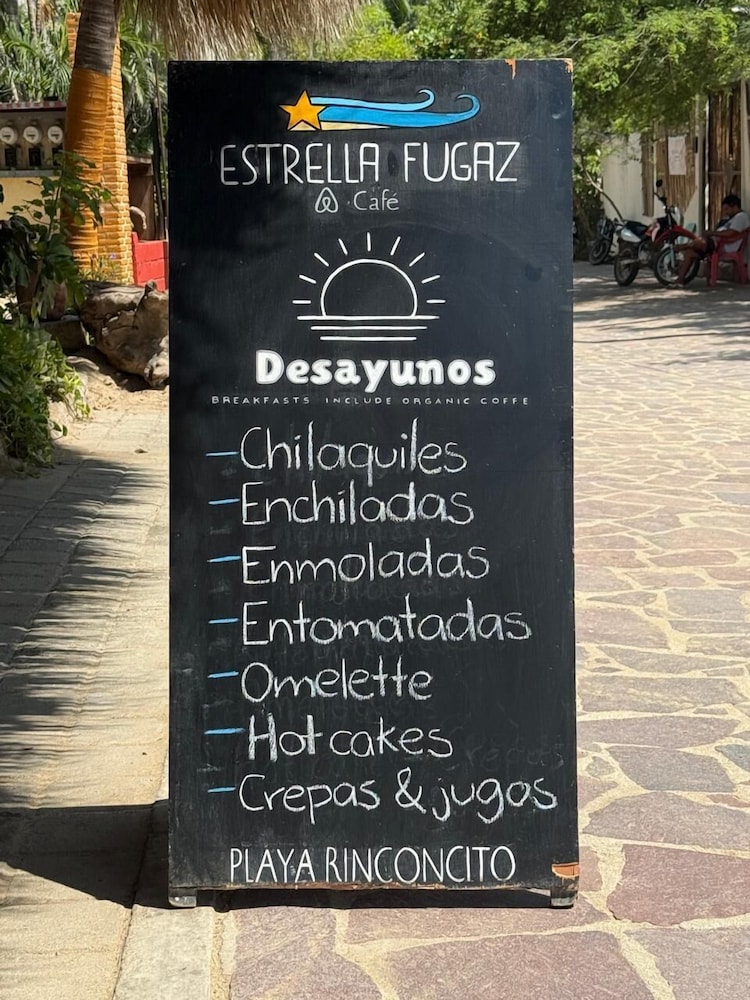 ESTRELLA FUGAZ
Café
Desayunos
BREAKFASTS INCLUDE ORGANIC COFFE
- Chilaquiles
- Enchiladas
- Enmoladas
- Entomatadas
- Omelette
- Hot cakes
- Crepas & jugos
PLAYA RINCONCITO